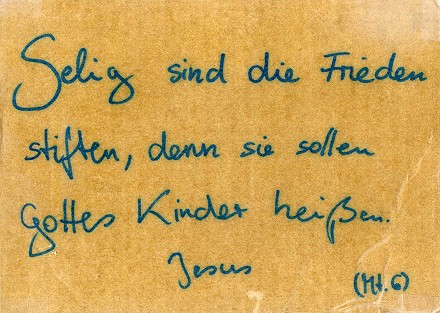 Selig sind die Frieden
stiften, denn sie sollen
Gottes Kinder heißen.
Jesus (Mt. 6)